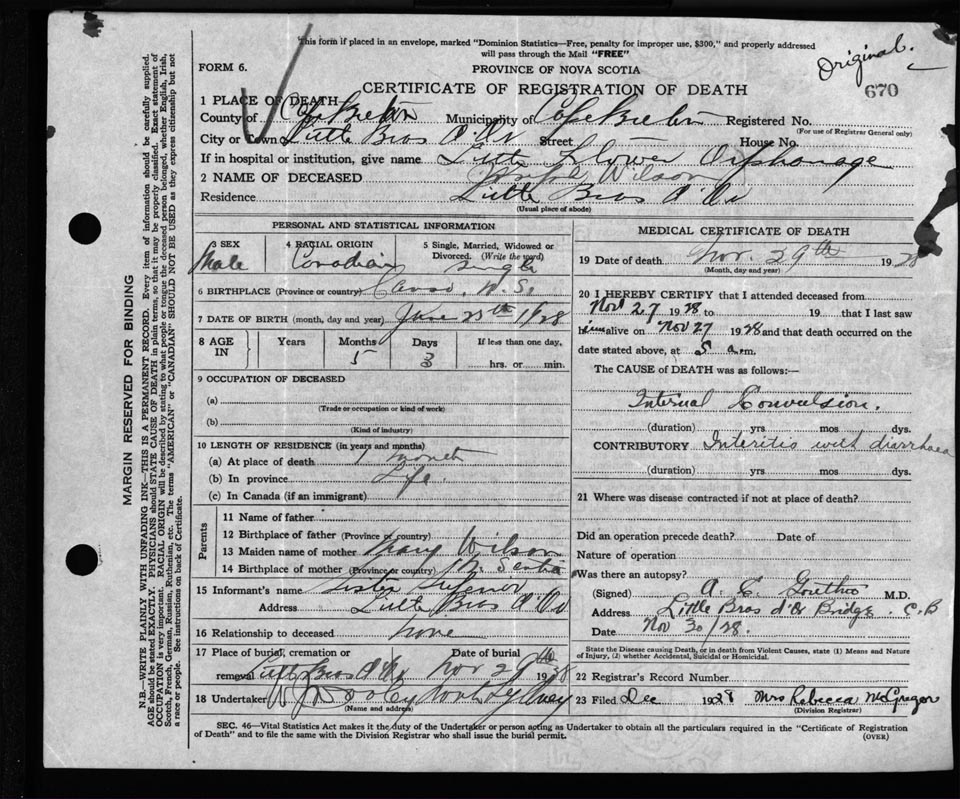 This form if placed in an envelope, marked "Dominion Statistics—Free, penalty for improper use, $300," and properly addressed
will pass through the Mail "FREE"
Original.
FORM 6.
PROVINCE OF NOVA SCOTIA
CERTIFICATE OF REGISTRATION OF DEATH
670
1 PLACE OF DEATH
County of Cape Breton Municipality of Cape Breton Registered No.
(For use of Registrar General only)
City or Town Little Bras d'Or Street House No.
If in hospital or institution, give name Little Flower Orphanage
2 NAME OF DECEASED Wilson
Residence Little Bras d'Or
(Usual place of abode)
PERSONAL AND STATISTICAL INFORMATION
3 SEX 4 RACIAL ORIGIN 5 Single, Married, Widowed or Divorced. (Write the word)
Male Canadian Single
6 BIRTHPLACE (Province or country) Canso, N.S.
7 DATE OF BIRTH (month, day and year) June 25th 1928
8 AGE IN Years Months Days If less than one day,
5 3 hrs. or min.
9 OCCUPATION OF DECEASED
(a)
(Trade or occupation or kind of work)
(b)
(Kind of industry)
10 LENGTH OF RESIDENCE (in years and months)
(a) At place of death 1 month
(b) In province Life.
(c) In Canada (if an immigrant)
Parents
11 Name of father
12 Birthplace of father (Province or country)
13 Maiden name of mother Mary Wilson
14 Birthplace of mother (Province or country) N. Scotia
15 Informant's name Sister Superior
Address Little Bras d'Or
16 Relationship to deceased none
17 Place of burial, cremation or removal Date of burial
Little Bras d'Or Nov 29th 1928
18 Undertaker North Sydney
(Name and address)
MEDICAL CERTIFICATE OF DEATH
19 Date of death Nov. 29th 1928
(Month, day and year)
20 I HEREBY CERTIFY that I attended deceased from
Nov 27 1928 to 19 that I last saw
him alive on Nov 27 1928 and that death occurred on the
date stated above, at 5 a.m.
The CAUSE of DEATH was as follows:—
Internal Convulsion.
(duration) yrs mos dys.
CONTRIBUTORY Interitis with diarrhaea
(duration) yrs mos dys.
21 Where was disease contracted if not at place of death?
Did an operation precede death? Date of
Nature of operation
Was there an autopsy?
(Signed) A. C. M.D.
Address Little Bras d'Or Bridge, C.B
Date Nov 30/28.
State the Disease causing Death, or in death from Violent Causes, state (1) Means and Nature of Injury, (2) whether Accidental, Suicidal or Homicidal.
22 Registrar's Record Number
23 Filed Dec 1928 Mrs Rebecca McGregor
(Division Registrar)
SEC. 46—Vital Statistics Act makes it the duty of the Undertaker or person acting as Undertaker to obtain all the particulars required in the "Certificate of Registration
of Death" and to file the same with the Division Registrar who shall issue the burial permit.
(OVER)
MARGIN RESERVED FOR BINDING
N.B.—WRITE PLAINLY WITH UNFADING INK—THIS IS A PERMANENT RECORD. Every item of information should be carefully supplied.
AGE should be stated EXACTLY. PHYSICIANS should STATE CAUSE OF DEATH in plain terms, so that it may be properly classified. Exact statement of
OCCUPATION is very important. RACIAL ORIGIN will be described by stating to what people or tongue the deceased person belonged, whether English, Irish,
Scotch, French, German, Russian, Ruthenian, etc. The terms "AMERICAN" or "CANADIAN" SHOULD NOT BE USED as they express citizenship but not
a race or people. See instructions on back of Certificate.